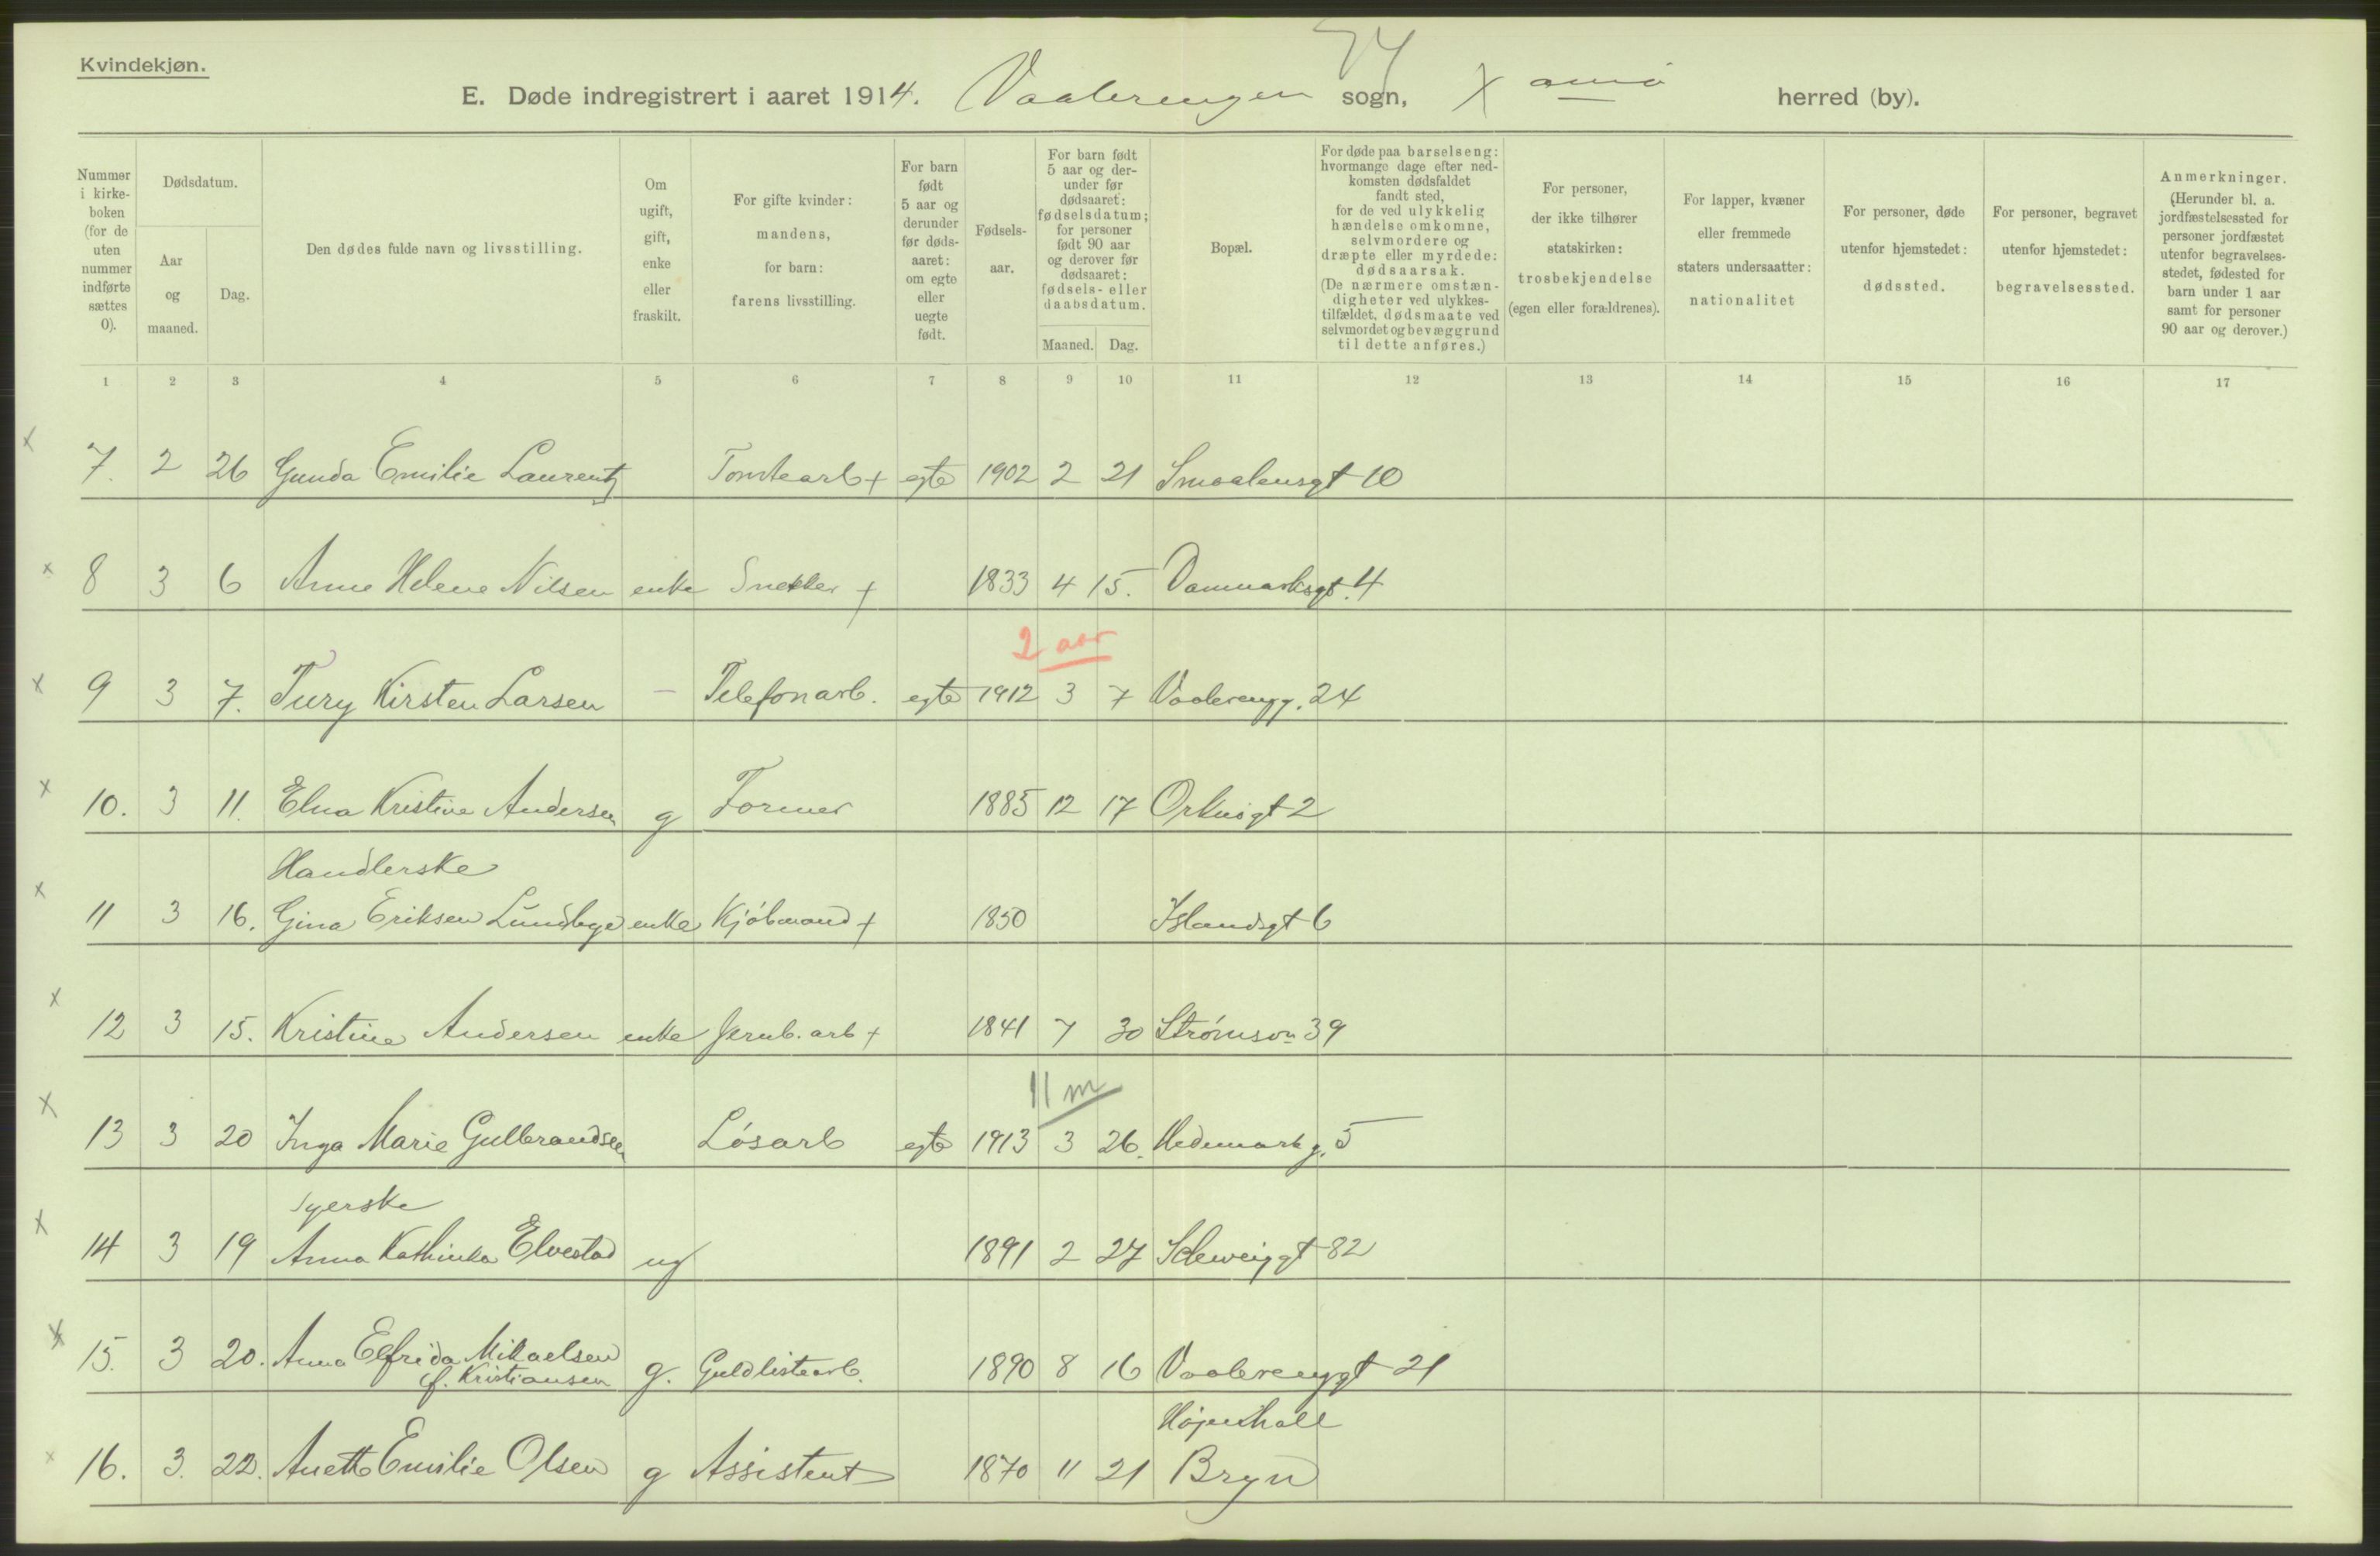 Kvindekjøn.
74
E. Døde indregistrert i aaret 1914. Vaalerengen sogn, X herred (by).
Nummer i kirke-boken (for de uten nummer indførte sættes 0).
Dødsdatum.
Aar og maaned.
Dag.
Den dødes fulde navn og livsstilling.
Om ugift, gift, enke eller fraskilt.
For gifte kvinder: mandens, for barn: farens livsstilling.
For barn født 5 aar og derunder før døds-aaret: om egte eller uegte født.
Fødsels-aar.
For barn født 5 aar og der-under før dødsaaret: fødselsdatum; for personer født 90 aar og derover før dødsaaret: fødsels- eller daabsdatum.
Maaned. Dag.
Bopæl.
For døde paa barselseng: hvormange dage efter ned-komsten dødsfaldet fandt sted, for de ved ulykkelig hændelse omkomne, selvmordere og dræpte eller myrdede: dødsaarsak. (De nærmere omstæn-digheter ved ulykkes-tilfældet, dødsmaate ved selvmordet og bevæggrund til dette anføres.)
For personer, der ikke tilhører statskirken: trosbekjendelse (egen eller forældrenes).
For lapper, kvæner eller fremmede staters undersaatter: nationalitet
For personer, døde utenfor hjemstedet: dødssted.
For personer, begravet utenfor hjemstedet: begravelsessted.
Anmerkninger. (Herunder bl. a. jordfæstelsessted for personer jordfæstet utenfor begravelses-stedet, fødested for barn under 1 aar samt for personer 90 aar og derover.)
1 2 3 4 5 6 7 8 9 10 11 12 13 14 15 16 17
X 7. 2 26 Gunda Emilie Laurentz Tomtearb + egte 1902 2 21 Smaalensgt 10
x 8 3 6 Anne Helene Nilsen enke Snekker + 1833 4 15. Danmarksgt. 4
2 aar
x 9 3 7. Tury Kirsten Larsen - Telefonarb. egte 1912 3 7 Vaalerengg. 24
x 10. 3 11. Elna Kristine Andersen g Former 1885 12 17 Orknisgt 2
Handlerske
x 11 3 16. Gina Eriksen Lundbye enke Kjøbmand + 1850 Islandsgt 6
x 12 3 15. Kristine Andersen enke Jernb. arb + 1841 7 30 Strømsvn 39
11 m
x 13 3 20 Inga Marie Gulbrandsen Løsarb egte 1913 3 26. Hedemark g. 5
Syerske
x 14 3 19 Anna Kathinka Elvestad ug 1891 2 27 Schweiggt 82
x 15. 3 20. Anna Elfrida Mikaelsen
f. Kristiansen g. Guldlistearb. 1890 8 16 Vaalerenggt 21
Højenhall
x 16. 3. 22. Anette Emilie Olsen g Assistent 1870 11 21 Bryn